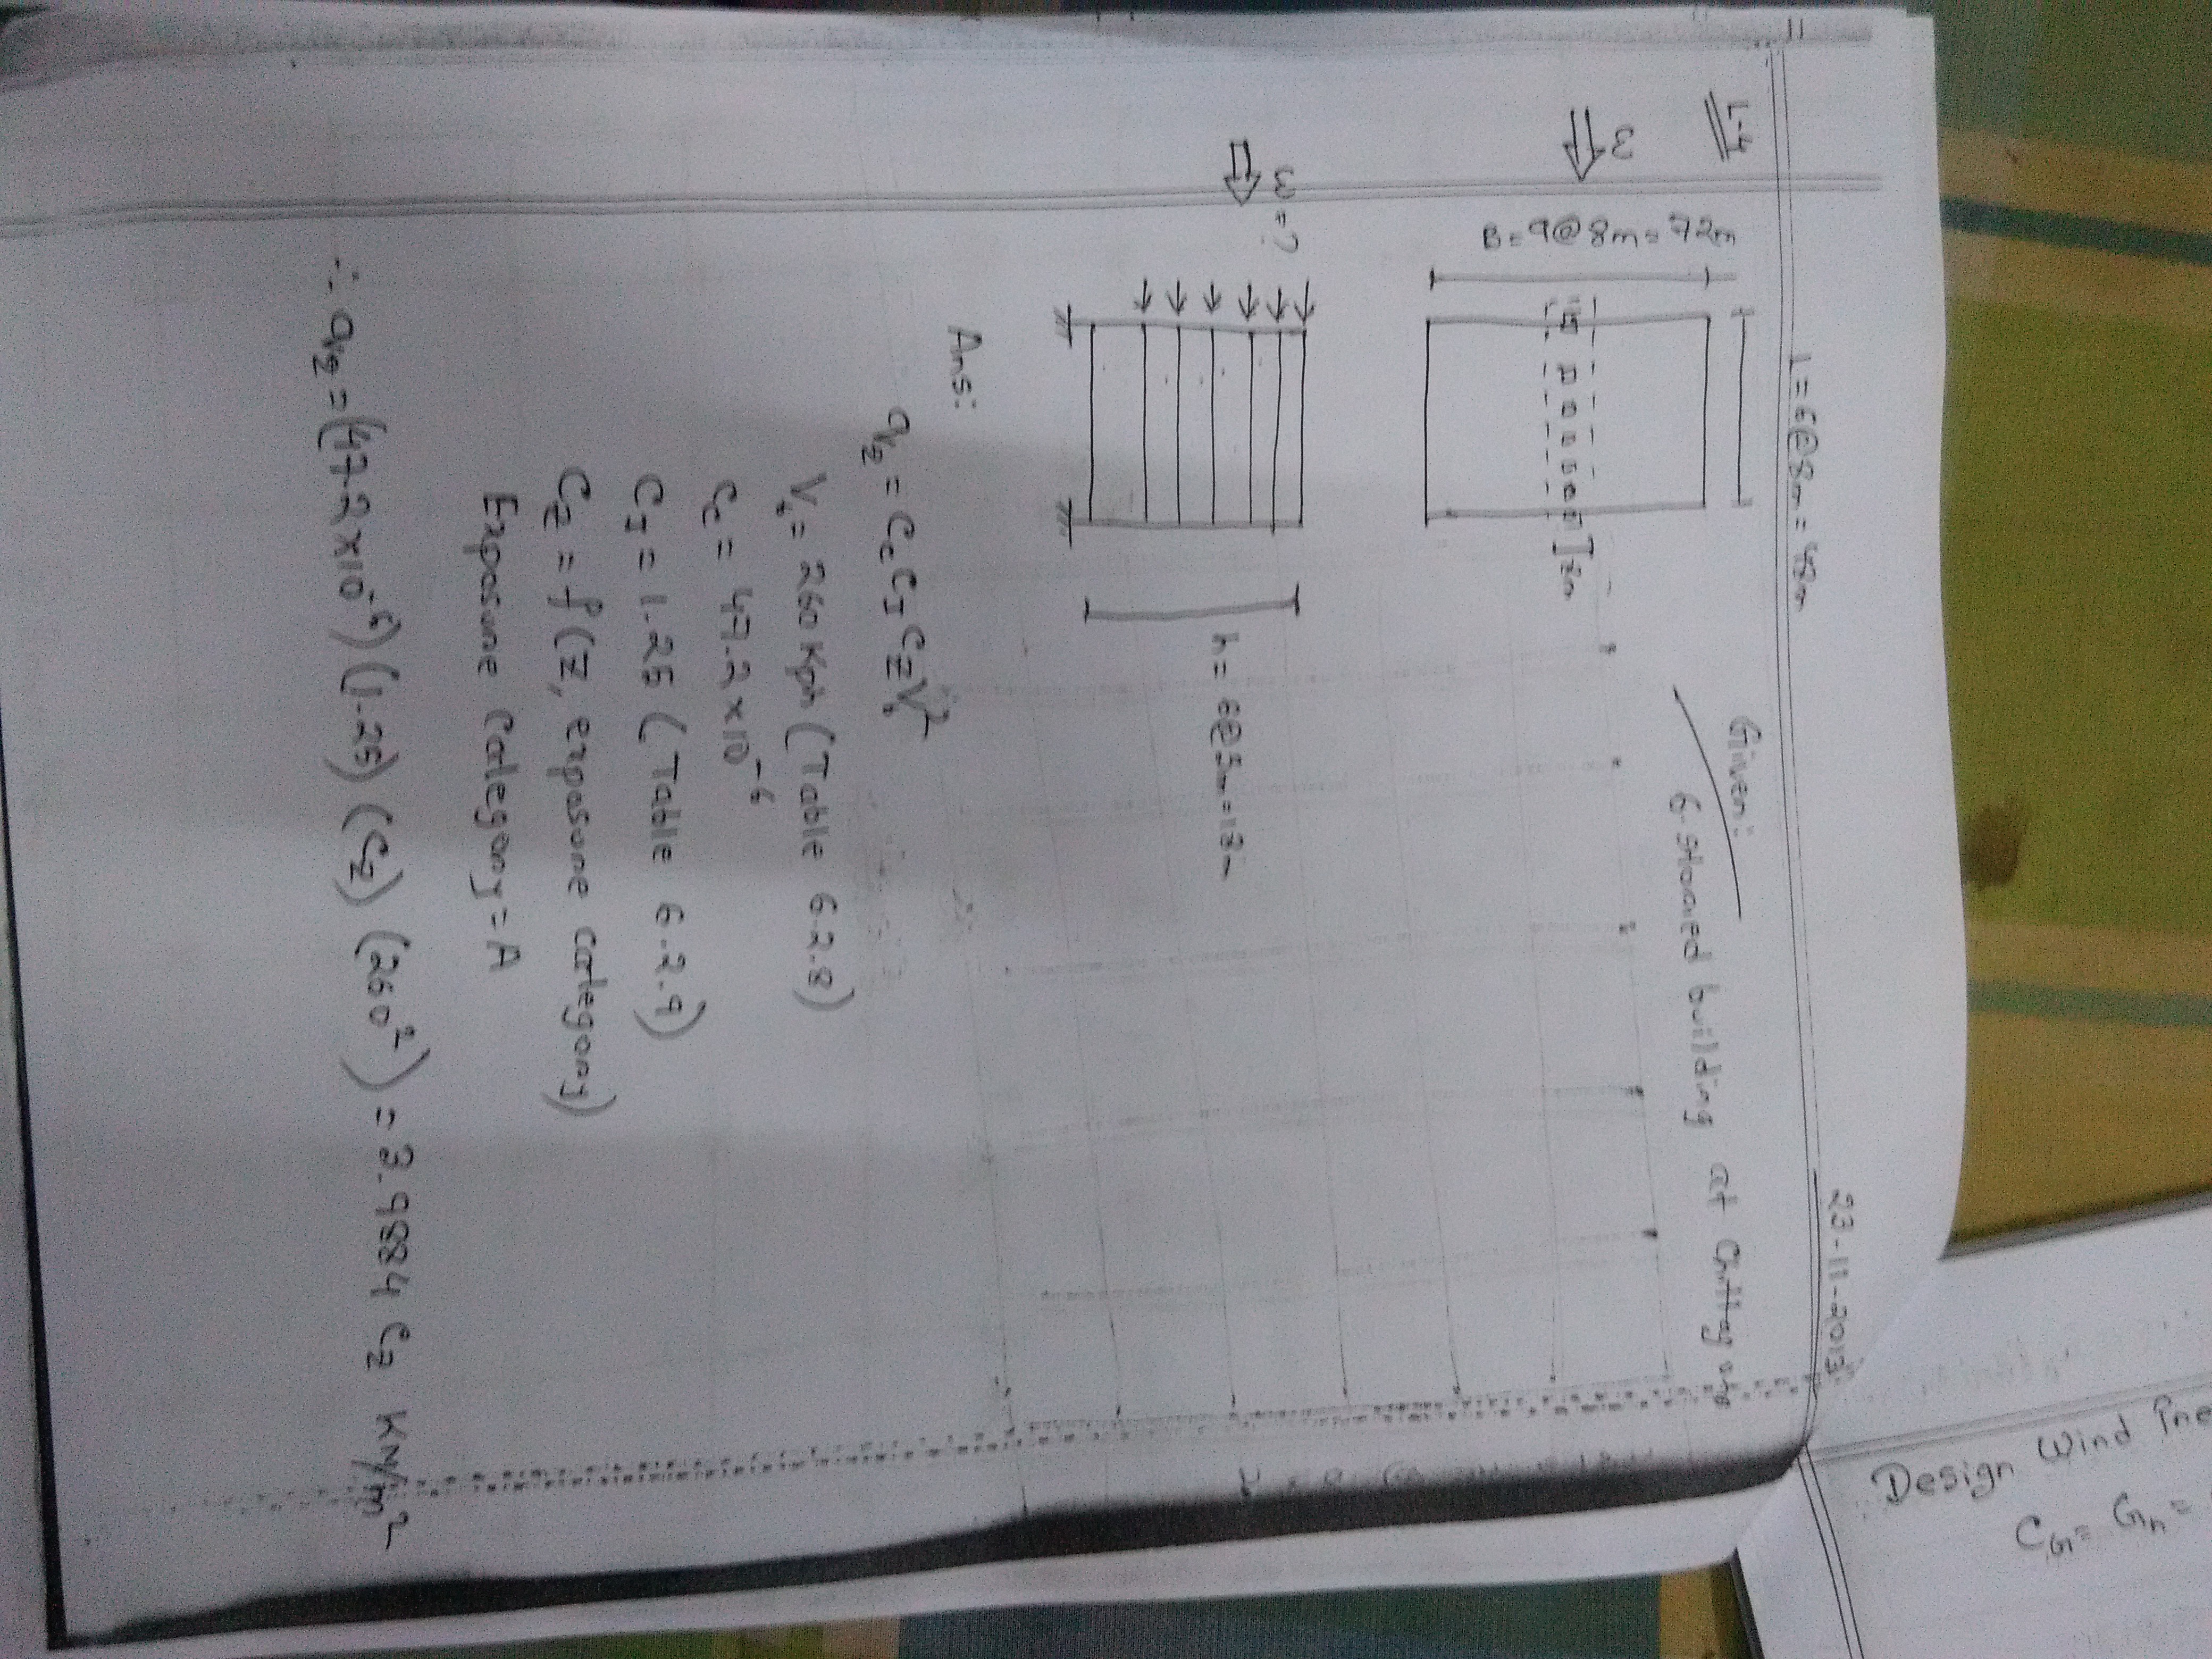 23-11-2013
L-4
L=6@8m=48m
Given:
6 storied building at Chittagong
ω
B=9@8m=72m
]8m
ω=?
h=6@3m=18m
Ans:
qz = Cc CI Cz Vb²
Vb = 260 Kph (Table 6.2.8)
Cc = 47.2×10⁻⁶
CI = 1.25 (Table 6.2.9)
Cz = f(z, exposure category)
Exposure Category = A
∴ qz = (47.2×10⁻⁶) (1.25) (Cz) (260²) = 3.9884 Cz KN/m²
Design Wind Pre
CG = Gh =